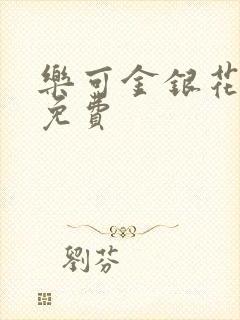 樂可金銀花
免費
劉芬